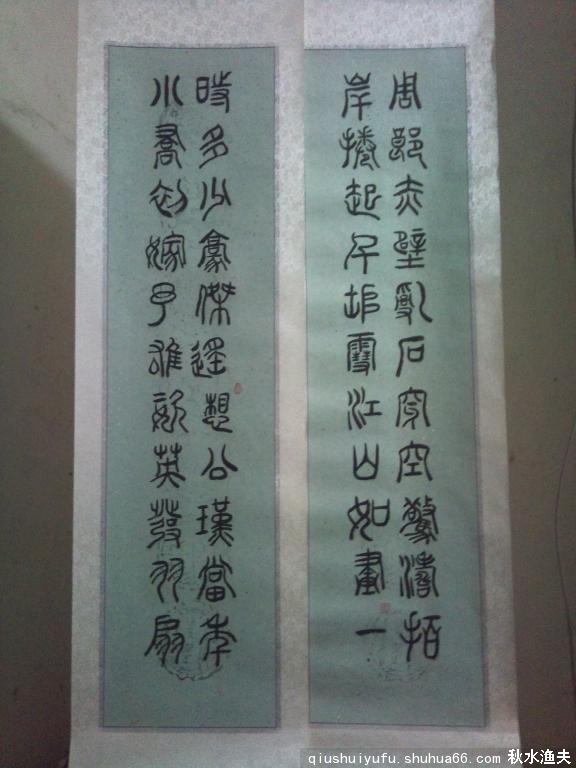 周郎赤壁亂石穿空驚濤拍
岸捲起千堆雪江山如畫一
時多少豪傑遙想公瑾當年
小喬初嫁了雄姿英發羽扇
qiushuiyufu.shuhua66.com 秋水渔夫